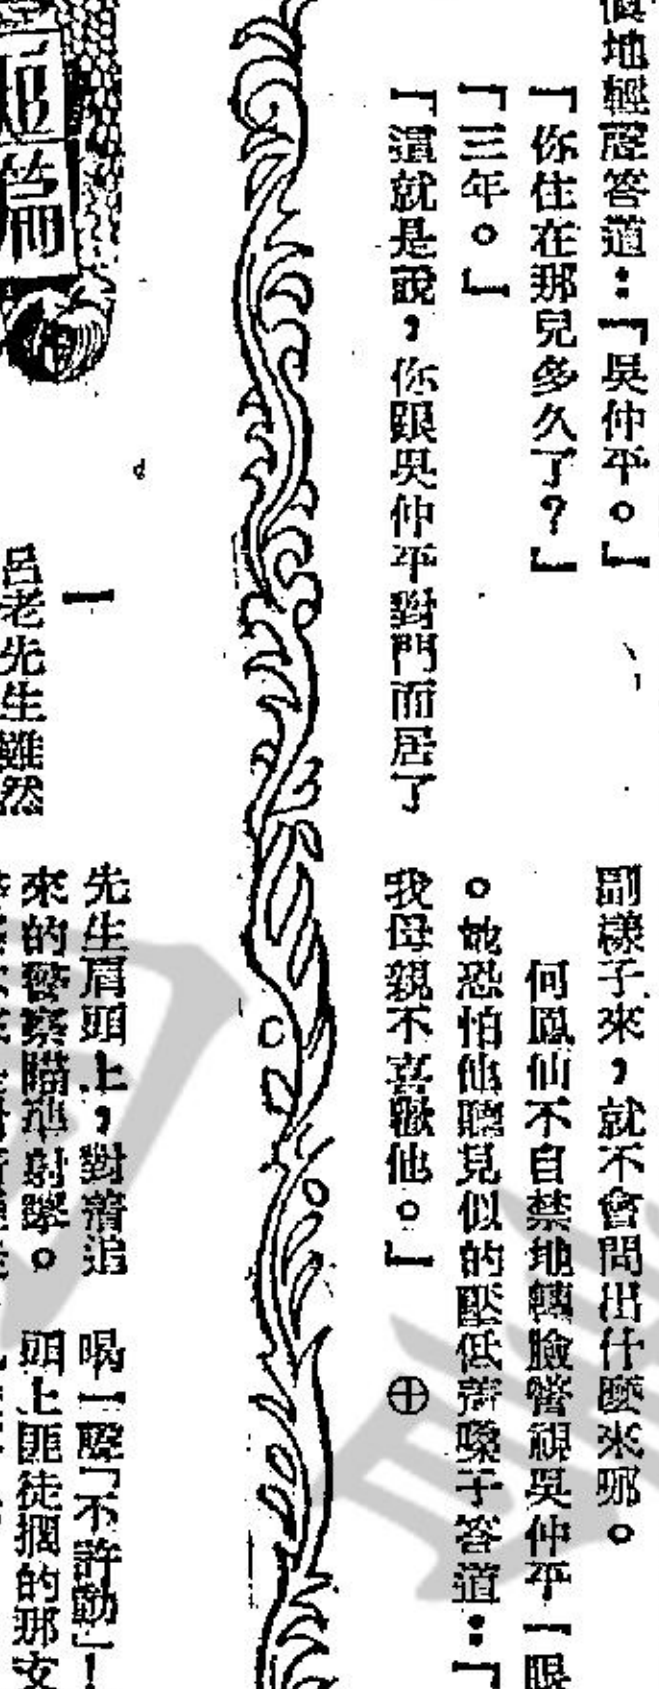 地輕聲答道：「吳仲平。」
「你住在那兒多久了？」
「三年。」
「這就是說，你跟吳仲平對門而居了
副樣子來，就不會問出什麼來哪。
何鳳仙不自禁地轉臉瞥視吳仲平一眼
。她恐怕他聽見似的壓低着嗓子答道：「
我母親不喜歡他。」⊕
短篇
一
呂老先生雖然
先生肩頭上，對着追
來的警察瞄準射擊。
喝一聲「不許動」！
頭上匪徒擱的那支